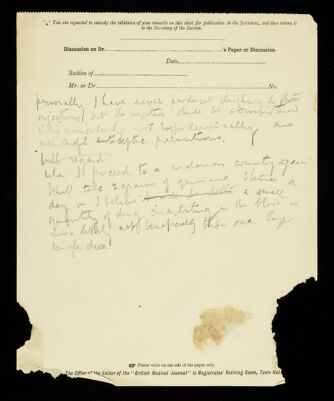 *** You are requested to embody the substance of your remarks on this sheet for publication in the JOURNAL, and then return it
to the Secretary of the Section.
Discussion on Dr. 's Paper or Discussion.
Date
Section of
Mr. or Dr. No.
personally I have never produced sloughing by these
injections but the injection should be
intramuscularly not hypodermically and
with careful antiseptic precautions.
with regard
When I proceed to a malarious country again
I shall take 2 grains of quinine 3 times a
day as I believe a small
quantity of drug circulating in the blood is
more likely act beneficially than one large
single dose
Please write on one side of the paper only.
The Office of the Editor of the "British Medical Journal" is Magistrates' Retiring Room, Town Hall